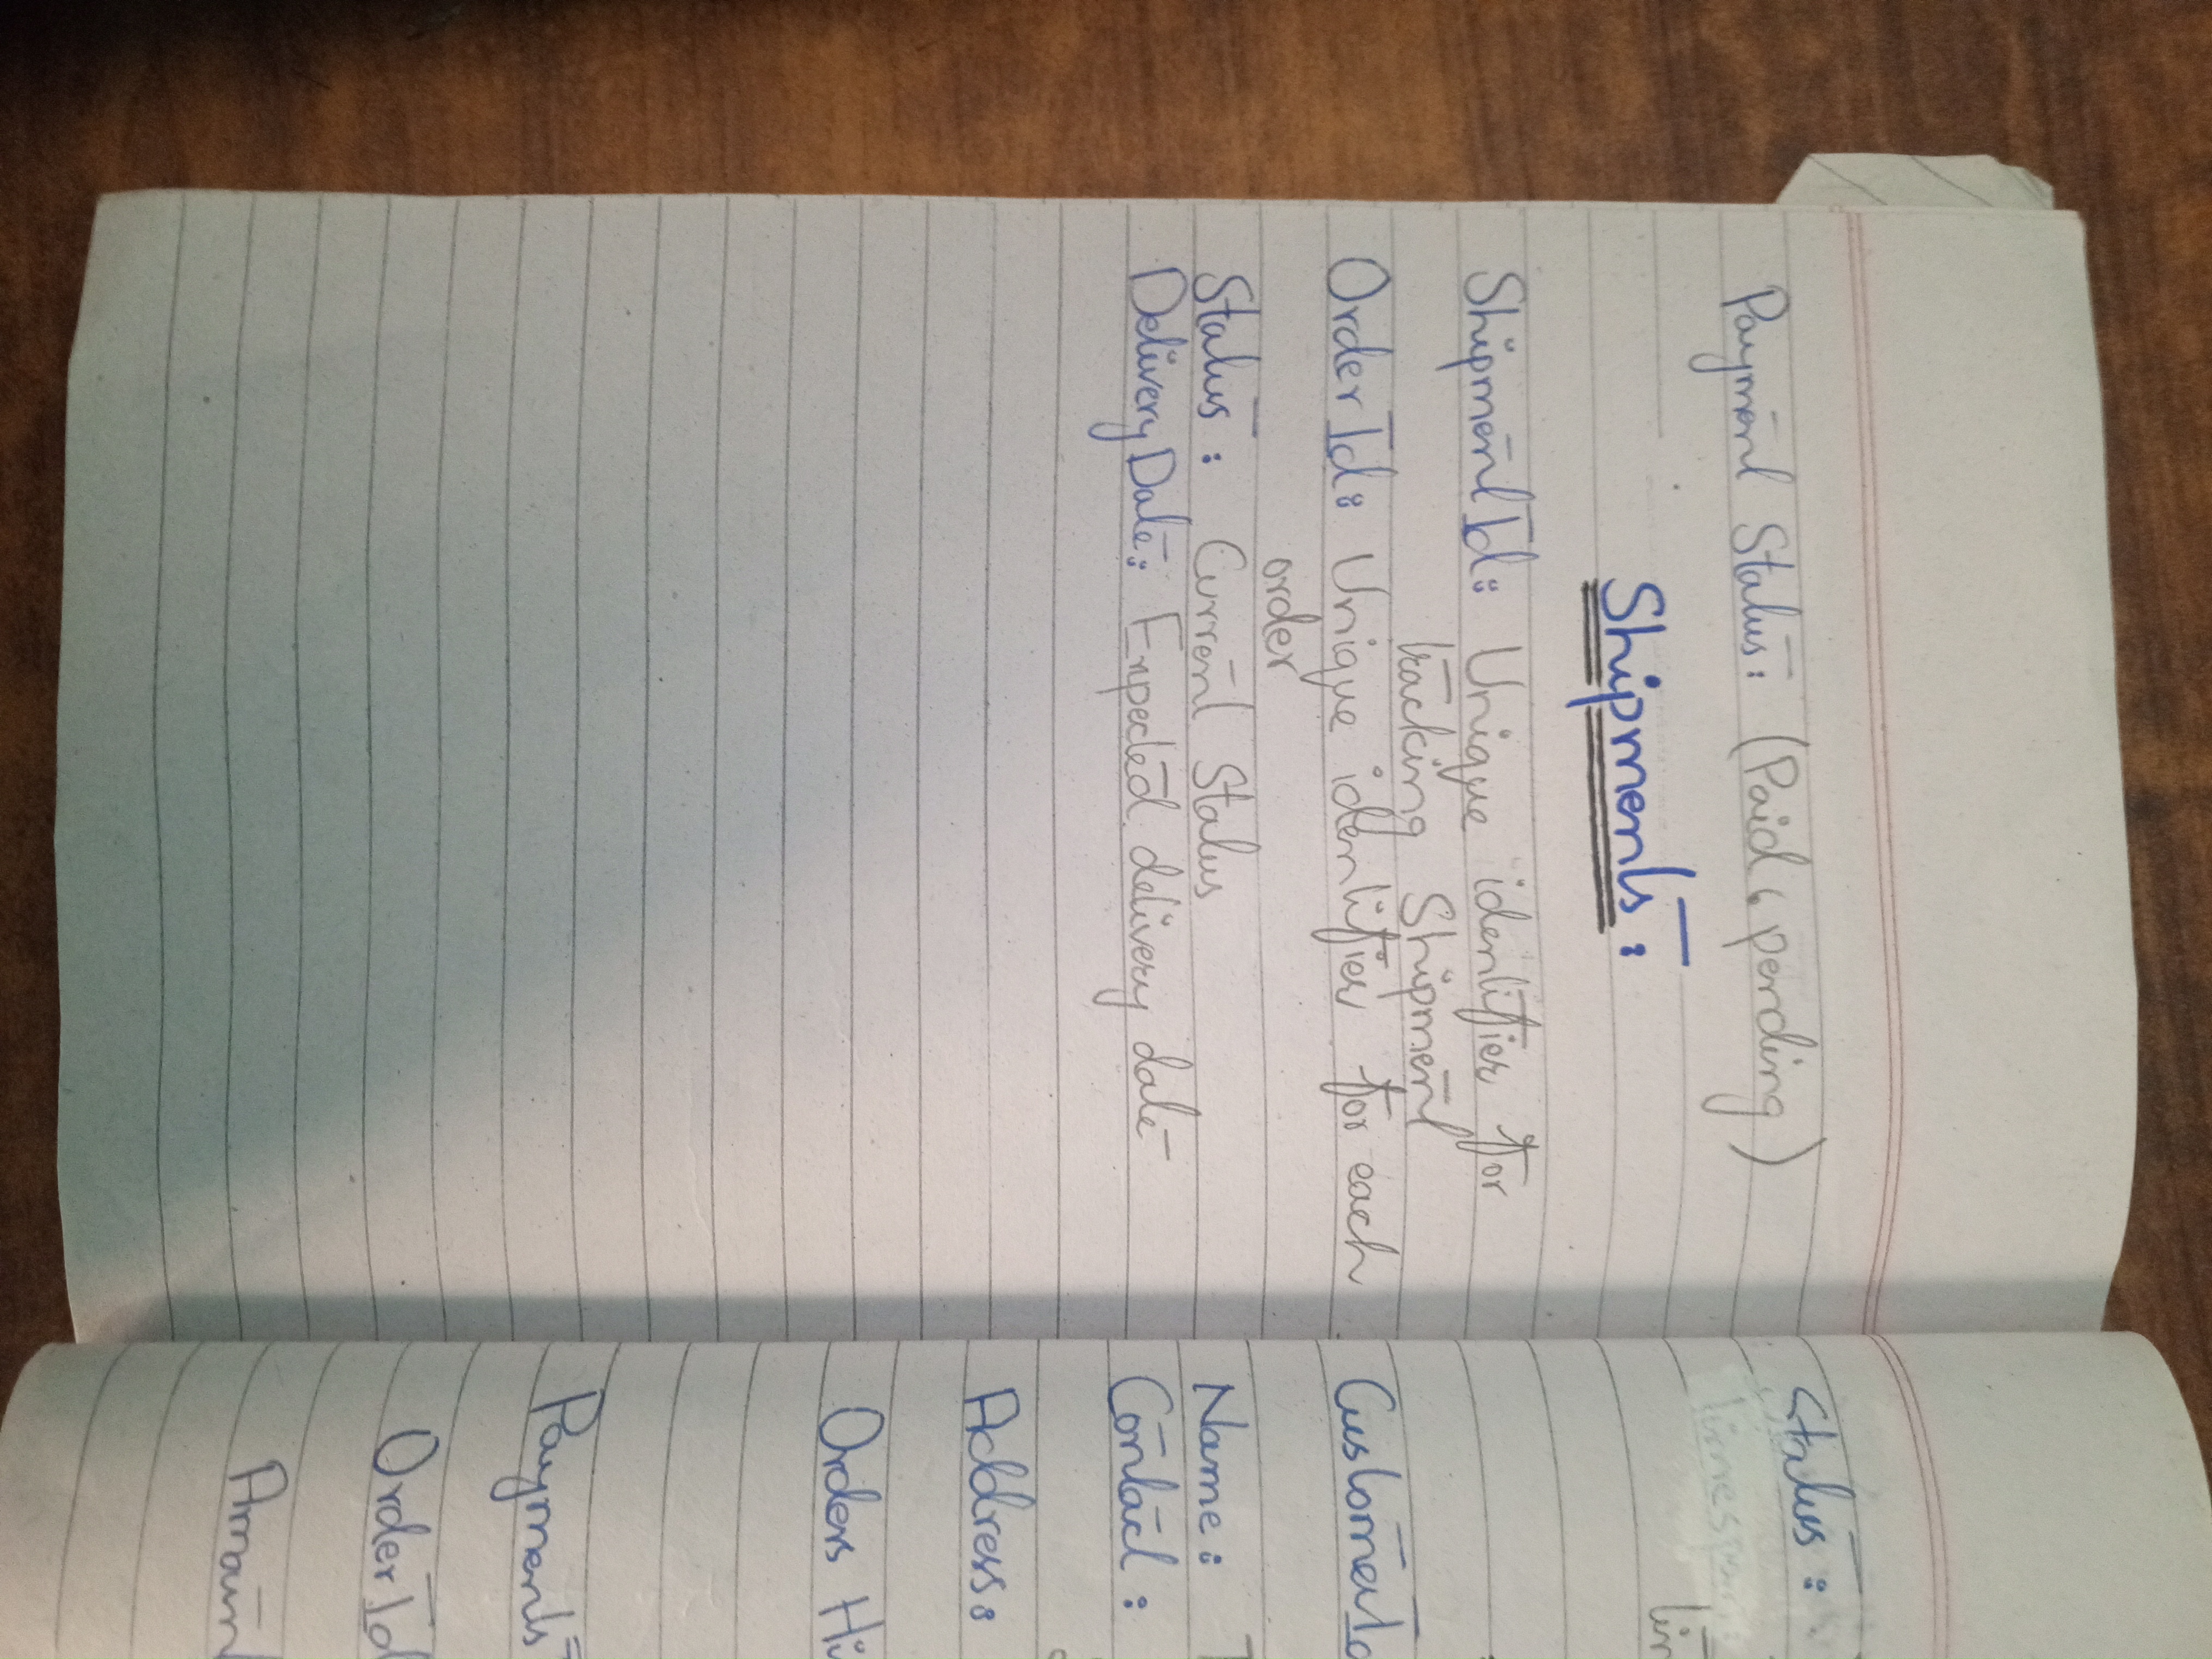 Payment Status: (Paid, pending)
Shipments:
ShipmentId: Unique identifier for
tracking Shipment
OrderId: Unique identifier for each
order
Status: Current Status
DeliveryDate: Expected delivery date
Status:
Name:
Contact:
Address:
Orders
Payments
OrderId